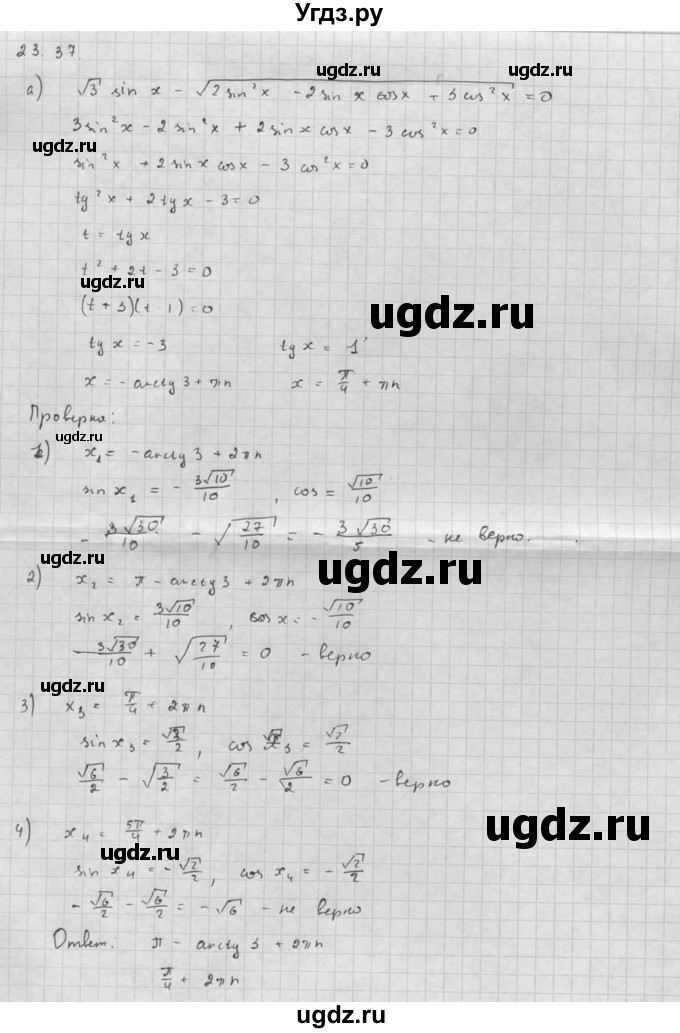 Угдз.ру
23.37.
а) √3 sin x - √(2 sin²x - 2 sin x cos x + 3 cos²x) = 0
3 sin²x - 2 sin²x + 2 sin x cos x - 3 cos²x = 0
ugdz.ru
sin²x + 2 sin x cos x - 3 cos²x = 0
tg²x + 2 tg x - 3 = 0
t = tg x
t² + 2t - 3 = 0
ugdz.ru
(t + 3)(t 1) = 0
ugdz.ru
tg x = -3 tg x = 1
x = - arctg 3 + πn x = π/4 + πn
Проверка:
ugdz.ru
1) x₁ = - arctg 3 + 2πn
sin x₁ = - 3√10/10, cos = √10/10
- 3√30/10 - √(27/10) = - 3√30/5 - не верно.
ugdz.ru
2) x₂ = π - arctg 3 + 2πn
sin x₂ = 3√10/10, cos x = - √10/10
3√30/10 + √(27/10) = 0 - верно
ugdz.ru
3) x₃ = π/4 + 2πn
sin x₃ = √2/2, cos x₃ = √2/2
√6/2 - √(3/2) = √6/2 - √6/2 = 0 - верно
ugdz.ru
4) x₄ = 5π/4 + 2πn
ugdz.ru
sin x₄ = - √2/2, cos x₄ = - √2/2
- √6/2 - √6/2 = - √6 - не верно
Ответ: π - arctg 3 + 2πn
ugdz.ru
π/4 + 2πn
ugdz.ru